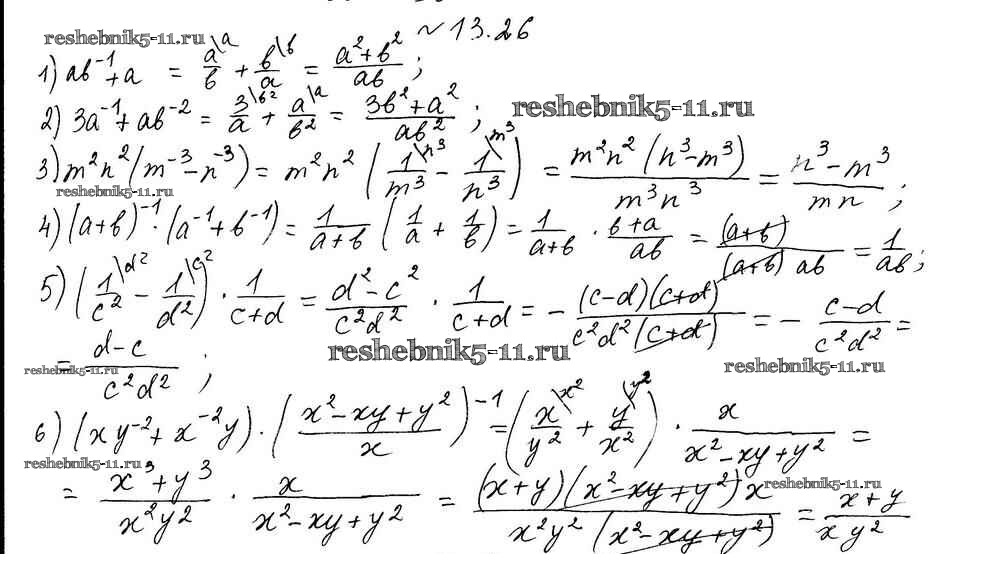 ~ 13.26
reshebnik5-11.ru
1) ab⁻¹ + a = a\a/b + b\b/a = (a² + b²)/(ab);
2) 3a⁻¹ + ab⁻² = 3\b²/a + a\a/b² = (3b² + a²)/(ab²);
reshebnik5-11.ru
3) m²n²(m⁻³ - n⁻³) = m²n² (1\n³/m³ - 1\m³/n³) = m²n²(n³ - m³)/(m³n³) = (n³ - m³)/(mn);
reshebnik5-11.ru
4) (a+b)⁻¹ · (a⁻¹ + b⁻¹) = 1/(a+b) (1/a + 1/b) = 1/(a+b) · (b+a)/(ab) = (a+b)/((a+b) ab) = 1/(ab);
5) (1\d²/c² - 1\c²/d²) · 1/(c+d) = (d² - c²)/(c²d²) · 1/(c+d) = - (c-d)(c+d)/(c²d²(c+d)) = - (c-d)/(c²d²) =
reshebnik5-11.ru
reshebnik5-11.ru
= (d-c)/(c²d²);
reshebnik5-11.ru
6) (xy⁻² + x⁻²y) · ((x² - xy + y²)/x)⁻¹ = (x\x²/y² + y\y²/x²) · x/(x² - xy + y²) =
reshebnik5-11.ru
= (x³ + y³)/(x²y²) · x/(x² - xy + y²) = (x+y)(x² - xy + y²) x/(x²y²(x² - xy + y²)) = (x+y)/(xy²)
reshebnik5-11.ru